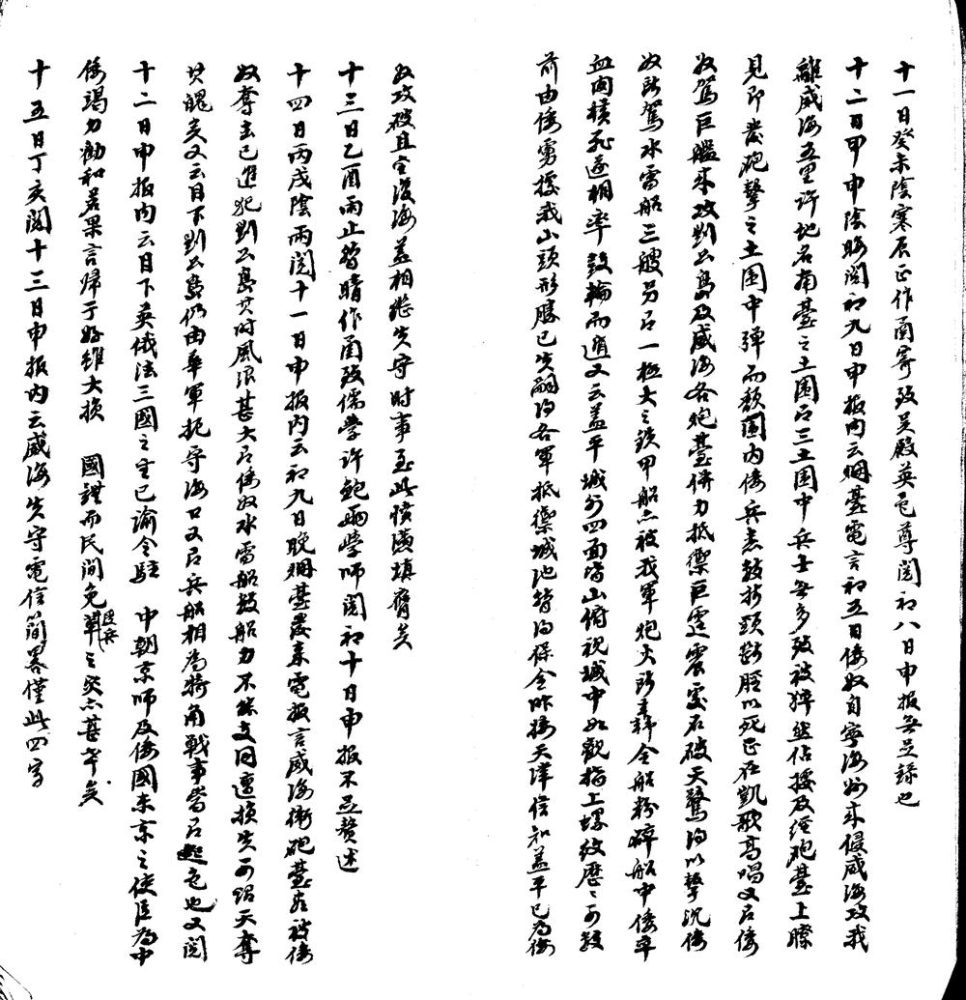 十一日癸未陰寒辰正作函寄致吴殿英邑尊閱初八日申报無足錄也
十二日甲申陰晦閱初九日申报内云烟臺電言初五日倭奴自寧海州來侵威海攻我
離威海五里许地名南臺之土圍又三土圍中兵士無多致被猝然佔據及經砲臺上瞭
見即發砲擊之土圍中彈而頹圍内倭兵悉數折頸斷脰以死正在凱歌高唱又有倭
奴駕巨艦來攻劉公島及威海各炮臺併力抵禦巨霆震處石破天驚旋以擊沉倭
奴所駕水雷船三艘另有一極大之鉄甲船亦被我軍炮火所轟全船粉碎船中倭卒
血肉横飛遂相率鼓輪而遁又云盖平城外四面皆山俯视城中如觀指上螺紋歷歷可數
前由倭虜據我山頭形勝已失嗣後各軍抵禦城池皆得保全昨接天津信知盖平已为倭
奴攻破且金復海盖相继失守时事至此憤懣填膺矣
十三日乙酉雨止仍晴作函致儒學许鲍兩學师閱初十日申报不足贅述
十四日丙戌陰雨閱十一日申报内云初九日晚烟臺發来電报言威海衛砲臺有被倭
奴奪去已進犯劉公島其时風浪甚大有倭奴水雷船数船力不能支同遭损失可谓天奪
其魄矣又云目下劉公島仍由華軍扼守海口又有兵船相為犄角戰事當有起色也又閱
十二日申报内云目下英俄法三國之主已諭令駐　中朝京师及倭國東京之使臣为中
倭竭力勸和若果言歸于好雖大损　國體而民間免罹兵之灾亦甚幸矣
十五日丁亥閱十三日申报内云威海失守電信簡畧僅此四字